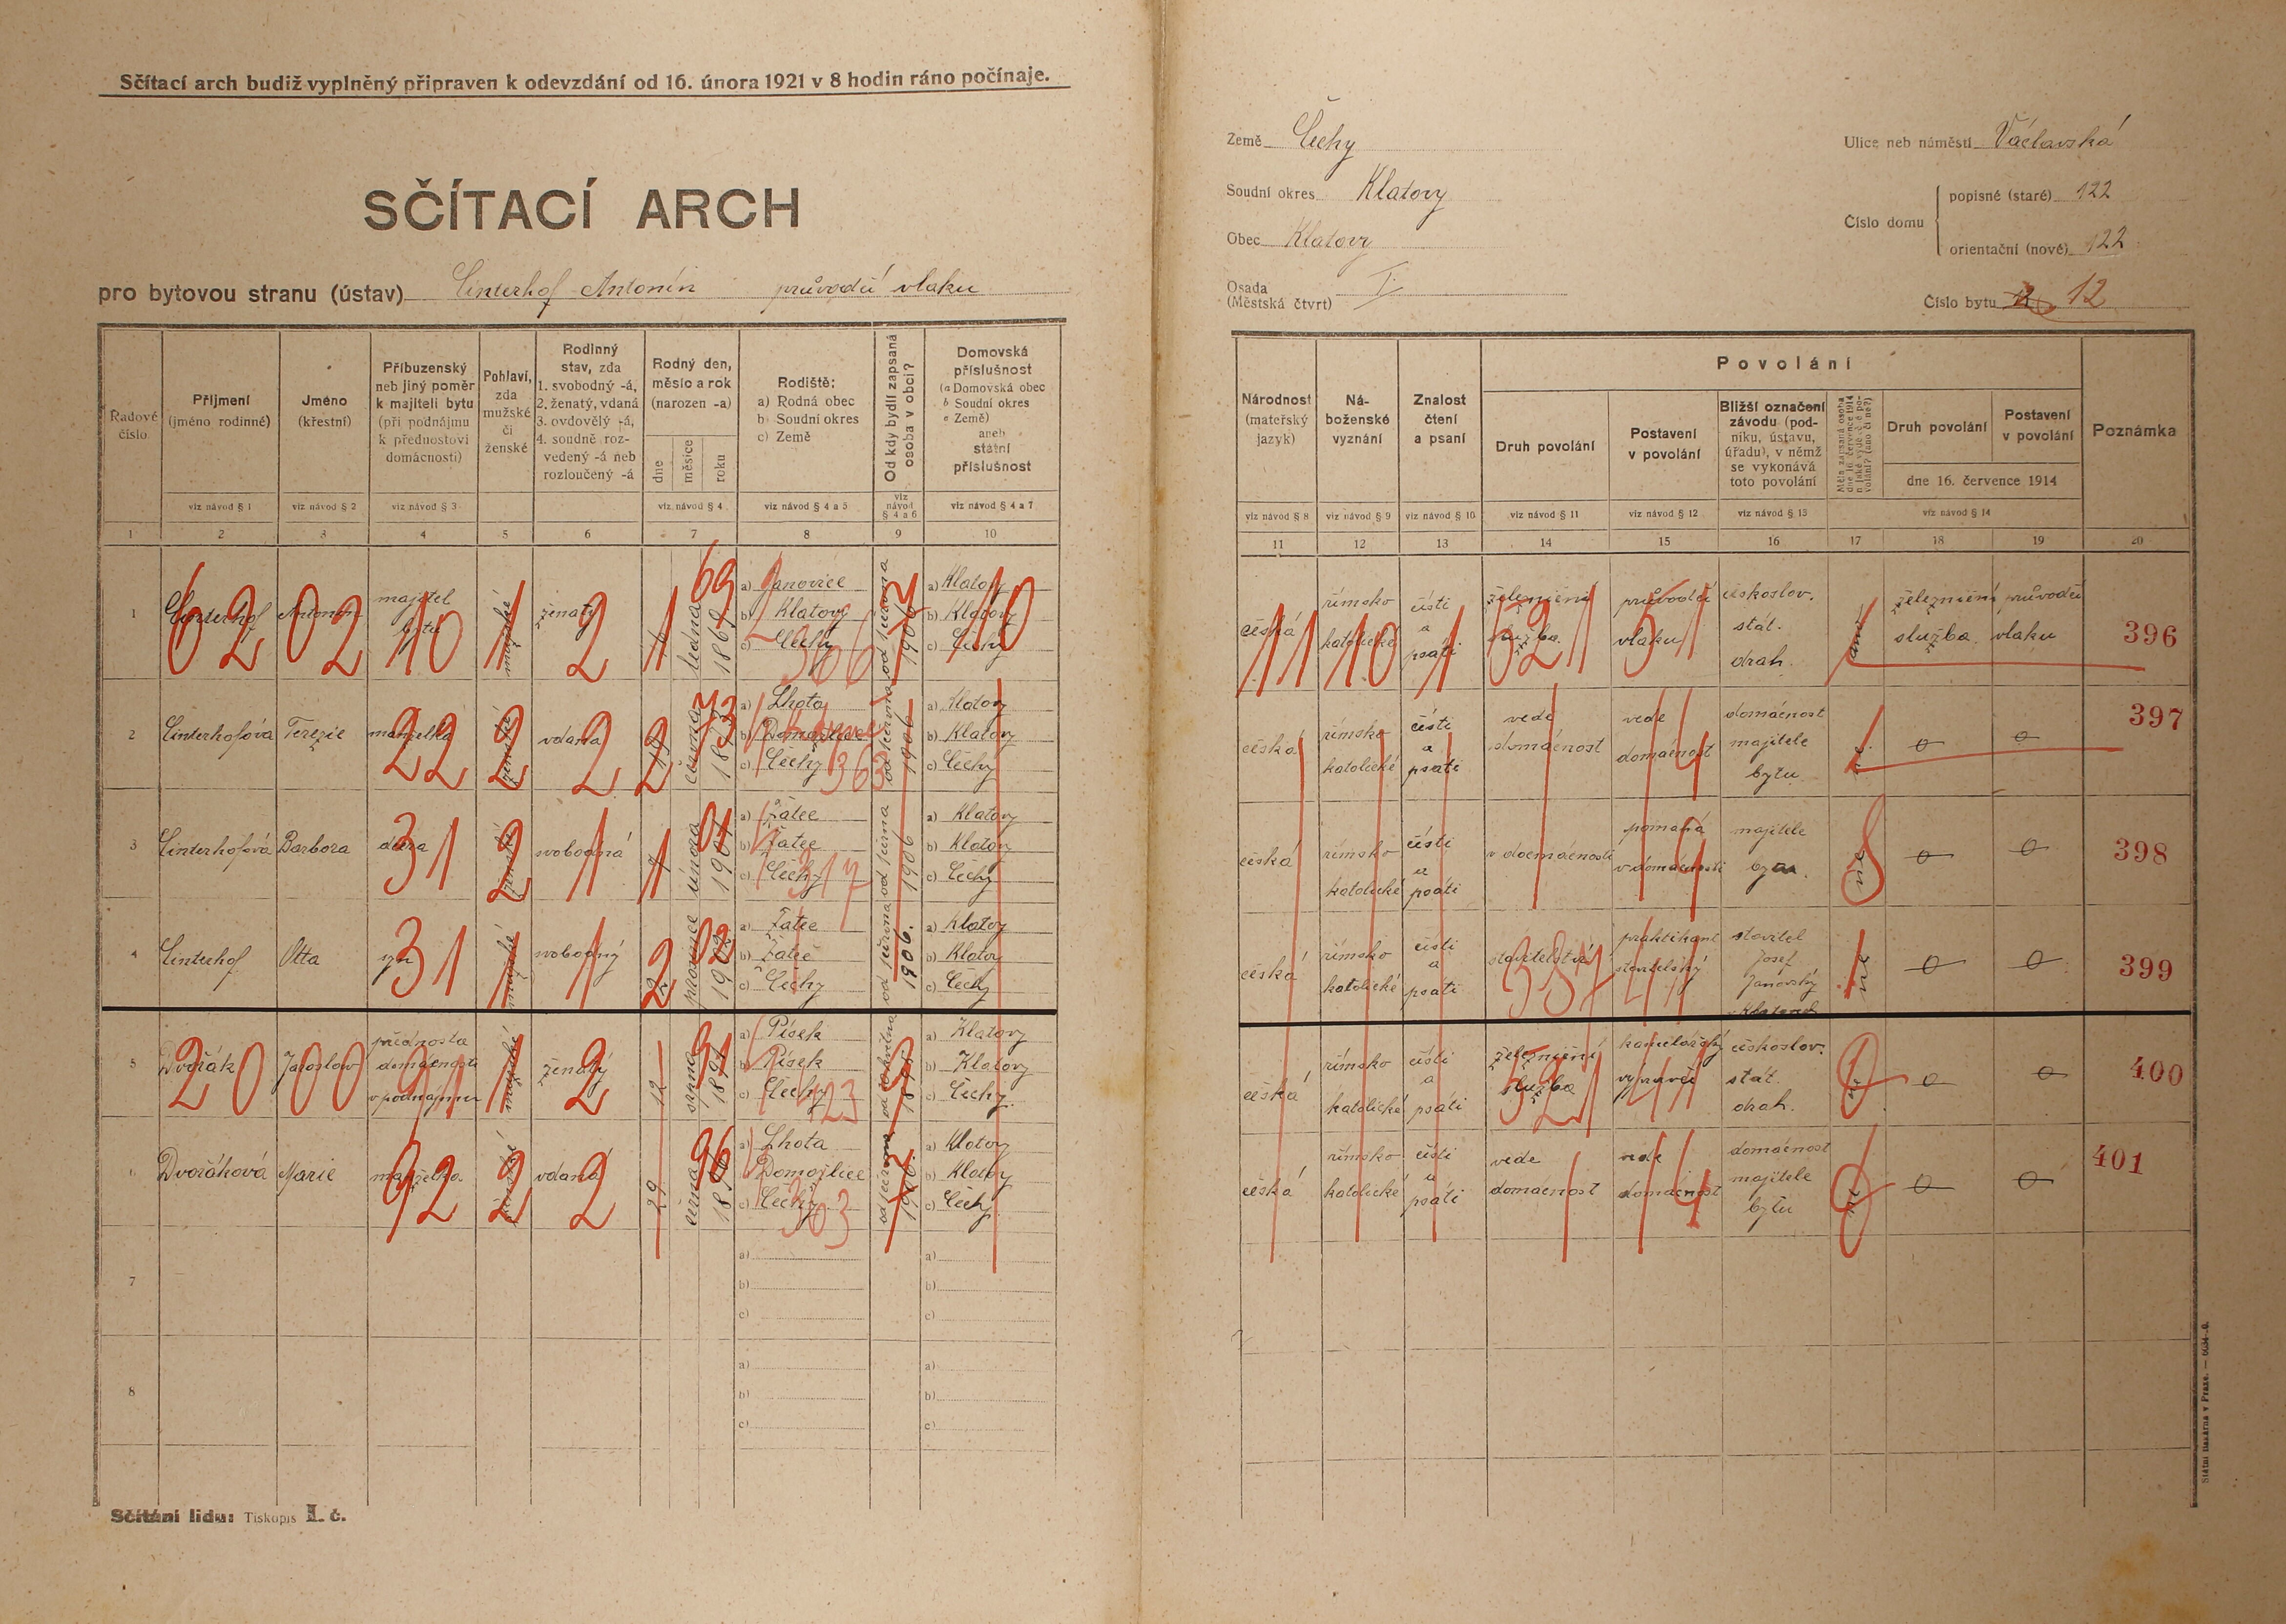 Sčítací arch budiž vyplněný připraven k odevzdání od 16. února 1921 v 8 hodin ráno počínaje.
SČÍTACÍ ARCH
pro bytovou stranu (ústav) Linterhof Antonín průvodčí vlaku
Země Čechy
Soudní okres Klatovy
Obec Klatovy
Osada
(Městská čtvrť) I.
Ulice neb náměstí Václavská
Číslo domu
popisné (staré) 122
orientační (nové) 122
Číslo bytu 12
Řadové číslo
Příjmení (jméno rodinné)
Jméno (křestní)
Příbuzenský neb jiný poměr k majiteli bytu (při podnájmu k přednostovi domácnosti)
Pohlaví, zda mužské či ženské
Rodinný stav, zda 1. svobodný -á, 2. ženatý, vdaná 3. ovdovělý -á, 4. soudně rozvedený -á neb rozloučený -á
Rodný den, měsíc a rok (narozen -a)
dne
měsíce
roku
Rodiště: a) Rodná obec b) Soudní okres c) Země
Od kdy bydlí zapsaná osoba v obci?
Domovská příslušnost (a Domovská obec b Soudní okres c Země) aneb státní příslušnost
viz návod § 1
viz návod § 2
viz návod § 3
viz návod § 4
viz návod § 4 a 5
viz návod § 4 a 6
viz návod § 4 a 7
1 2 3 4 5 6 7 8 9 10
Národnost (mateřský jazyk)
Náboženské vyznání
Znalost čtení a psaní
Povolání
Druh povolání
Postavení v povolání
Bližší označení závodu (podniku, ústavu, úřadu), v němž se vykonává toto povolání
Druh povolání
Postavení v povolání
dne 16. července 1914
Poznámka
viz návod § 8
viz návod § 9
viz návod § 10
viz návod § 11
viz návod § 12
viz návod § 13
viz návod § 14
11 12 13 14 15 16 17 18 19 20
1 Linterhof Antonín majitel bytu mužské ženatý ledna 1869 a) Janovice b) Klatovy c) Čechy od června 1906 a) Klatovy b) Klatovy c) Čechy
česká římsko katolické čísti a psáti železniční služba průvodčí vlaku československ. stát. drah. ano železniční služba průvodčí vlaku 396
2 Linterhofová Terezie manželka ženské vdaná června 1873 a) Lhota b) c) Čechy od června 1906 a) Klatovy b) Klatovy c) Čechy
česká římsko katolické čísti a psáti vede domácnost vede domácnost domácnost majitele bytu ne 0 0 397
3 Linterhofová Barbora dcera ženské svobodná 7 února 1901 a) Žatec b) Žatec c) Čechy od června 1906 a) Klatovy b) Klatovy c) Čechy
česká římsko katolické čísti a psáti v domácnosti pomáhá v domácnosti majitele bytu ne 0 0 398
4 Linterhof Otta syn mužské svobodný prosince 1902 a) Žatec b) Žatec c) Čechy od června 1906. a) Klatovy b) Klatovy c) Čechy
česká římsko katolické čísti a psáti stavitelství praktikant stavitelský stavitel Josef Janovský Klatovech ne 0 0 399
5 Dvořák Jaroslav přednosta domácnosti v podnájmu mužské ženatý 12 srpna 1891 a) Písek b) Písek c) Čechy a) Klatovy b) Klatovy c) Čechy
česká římsko katolické čísti a psáti železniční služba kancelářský výpravčí českoslov. stát. drah. 0 0 400
6 Dvořáková Marie manželka ženské vdaná 29 června 1896 a) Lhota Domažlice c) Čechy od června 1906 a) Klatovy b) Klatovy c) Čechy
česká římsko katolické čísti a psáti vede domácnost vede domácnost domácnost majitele bytu ne 0 0 401
7 a) b) c) a) b) c)
8 a) b) c) a) b) c)
Sčítání lidu: Tiskopis I. č.